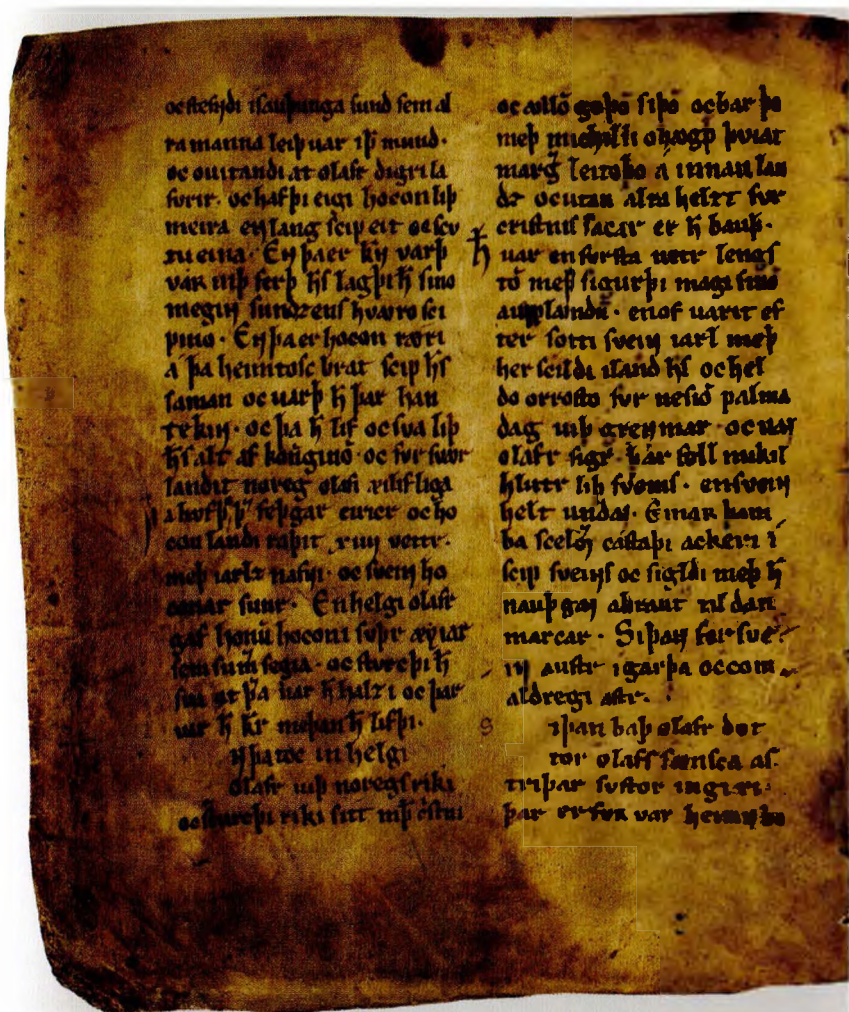 oc stefndi i sauþunga sund sem al
ra manna leiþ uar i þ mund·
oc ouitandi at olafr digri la
fvrir· oc hafþi eigi hocon liþ
meira en lang scip eit oc scv
tu eina· En þa er hn varþ
var uiþ ferþ hs lagþi ħ sino
megin sundzens hvaro sci
pino· En þa er hocon røri
á þa heimtosc brat scip hs
saman oc uarþ ħ þar han
tekin· oc þa ħ lif oc sva liþ
hs alt af konginom oc for suor
landit noreg olafi
a hafþ þr feþgar eiricr oc ho
con landi raþit xiiii vettr·
meþ iarls nafni· oc svein ho
conar sunr· En helgi olafr
gaf honū hoconi suþr øyiar
sem sum segia· oc stvrcþi ħ
sva at þa uar ħ halzi oc þar
uar ħ kr meþan ħ lifþi·
n þa toc in helgi
olafr uiþ noregs riki
oc sturcþi riki sitt mþ cristni
oc ollō goþo siþo oc bar þo
meþ michilli ohogþ þviat
marg leitoþo á innan lan
dz oc utan alra helzt fvr
cristnis sacar er ħ bauþ·
ħ uar en forsta uetr lengs
tō meþ sigurþi magi sino
a uplandū· en of uarit ef
ter sotti svein iarl meþ
her scildi iland hs oc hel
do orrosto fvr nesiō palma
dag uiþ grenmar· oc uan
olafr sigr· þar fell mikil
hlutr liþ sveins· en svein
helt undan· Einar þam
ba scelfir castaþi ackeri i
scip sveins oc sigldi meþ ħ
nauþgan abraut til dan
marcar· Siþan for sve
in austr i garþa oc com
aldregi aftr·
s iþan baþ olafr dot
tor olafs sønsca as
triþar svstor ingi ri
þar er fvr var heimin